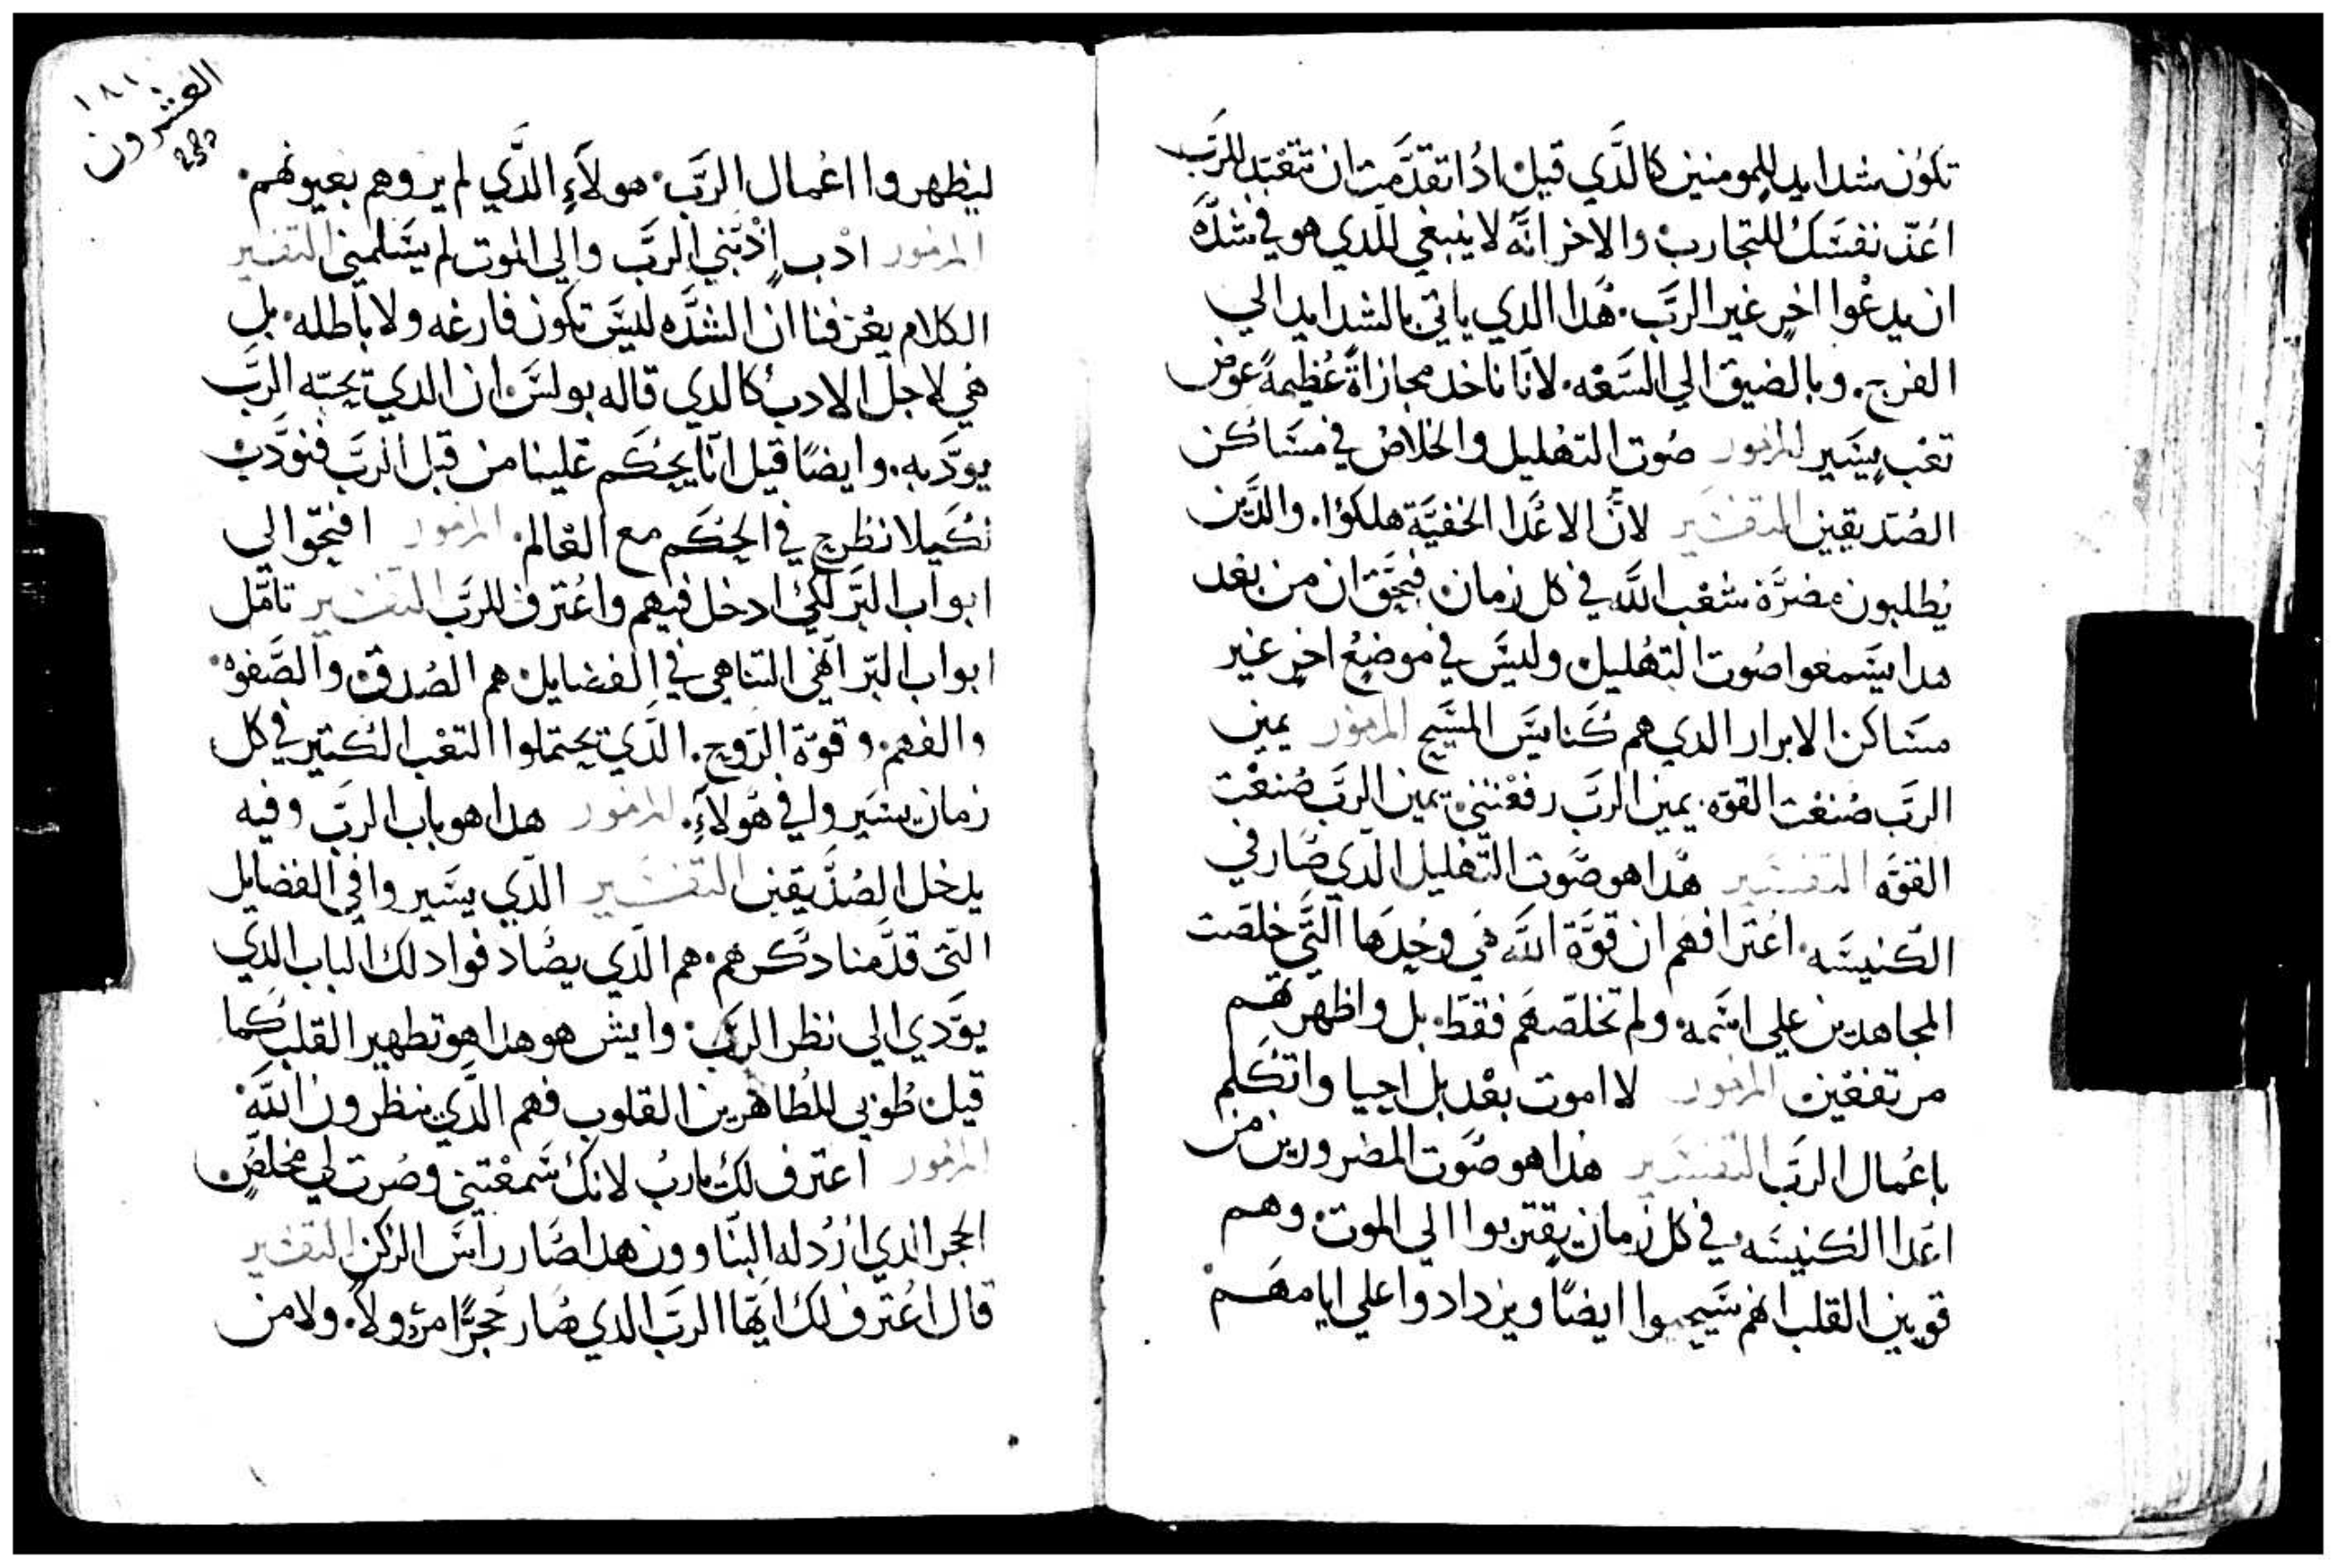 تكون شدايد للمومنين كالذي قيل ادا تقدمت ان تتعبد للرب
اعد نفسك للتجارب والاخر انه لا ينبغي للدي هو في شده
ان يدعوا اخر غير الرب. هدا الدي ياتي بالشدايد الي
الفرج. وبالضيق الي السعه. لانا ناخد مجازاة عظيمة عوض
تعب يسير المزمور صوت التهليل والخلاص في مساكن
الصديقين التفسير لان الاعدا الخفية هلكوا. والدين
يطلبون مضرة شعب الله في كل زمان فبحق ان من بعد
هدا يسمعوا صوت التهليل وليس في موضع اخر غير
مساكن الابرار الدي هم كنايس المسيح المزمور يمين
الرب صنعت القوه. يمين الرب رفعتني. يمين الرب صنعت
القوه التفسير هدا هو صوت التهليل الدي صار في
الكنيسه. اعترافهم ان قوة الله هي وحدها التي خلصت
المجاهدين علي اسمه. ولم تخلصهم فقط. بل واظهرتهم
مرتفعين المزمور لا اموت بعد بل احيا واتكلم
باعمال الرب التفسير هدا هو صوت المضرورين من
اعدا الكنيسه في كل زمان يقتربوا الي الموت. وهم
قويين القلب انهم سيحيوا ايضا ويزدادوا علي ايامهم
١٨١
العشرون
ليظهروا اعمال الرب. هولاء الدي لم يروهم بعيونهم.
المزمور ادب ادبني الرب والي الموت لم يسلمني التفسير
الكلام يعرفنا ان الشده ليس تكون فارغه ولا باطله. بل
هي لاجل الادب كالدي قاله بولس ان الدي يحبه الرب
يودبه. وايضا قيل انا يحكم علينا من قبل الرب فنودب
لكيلا نطرح في الحكم مع العالم. المزمور افتحوا لي
ابواب البر لكي ادخل فيهم واعترف للرب التفسير تامل
ابواب البر اهي التناهي في الفضايل هم الصدق والصفوه.
والفهم. وقوة الروح. الدي يحتملوا التعب الكتير في كل
زمان يسيروا في هولاء. المزمور هدا هو باب الرب وفيه
يدخل الصديقين التفسير الدي يسيروا في الفضايل
التي قدمنا دكرهم. هم الدي يصادفوا دلك الباب الدي
يودي الي نظر الرب. وايش هو هدا هو تطهير القلب كما
قيل طوبي للطاهرين القلوب فهم الدي ينظرون الله
المزمور اعترف لك يارب لانك سمعتني وصرت لي مخلص
الحجر الدي ارذله البناوون هدا صار راس الركن التفسير
قال اعترف لك ايها الرب الدي صار حجرا مرذولا. ولا من